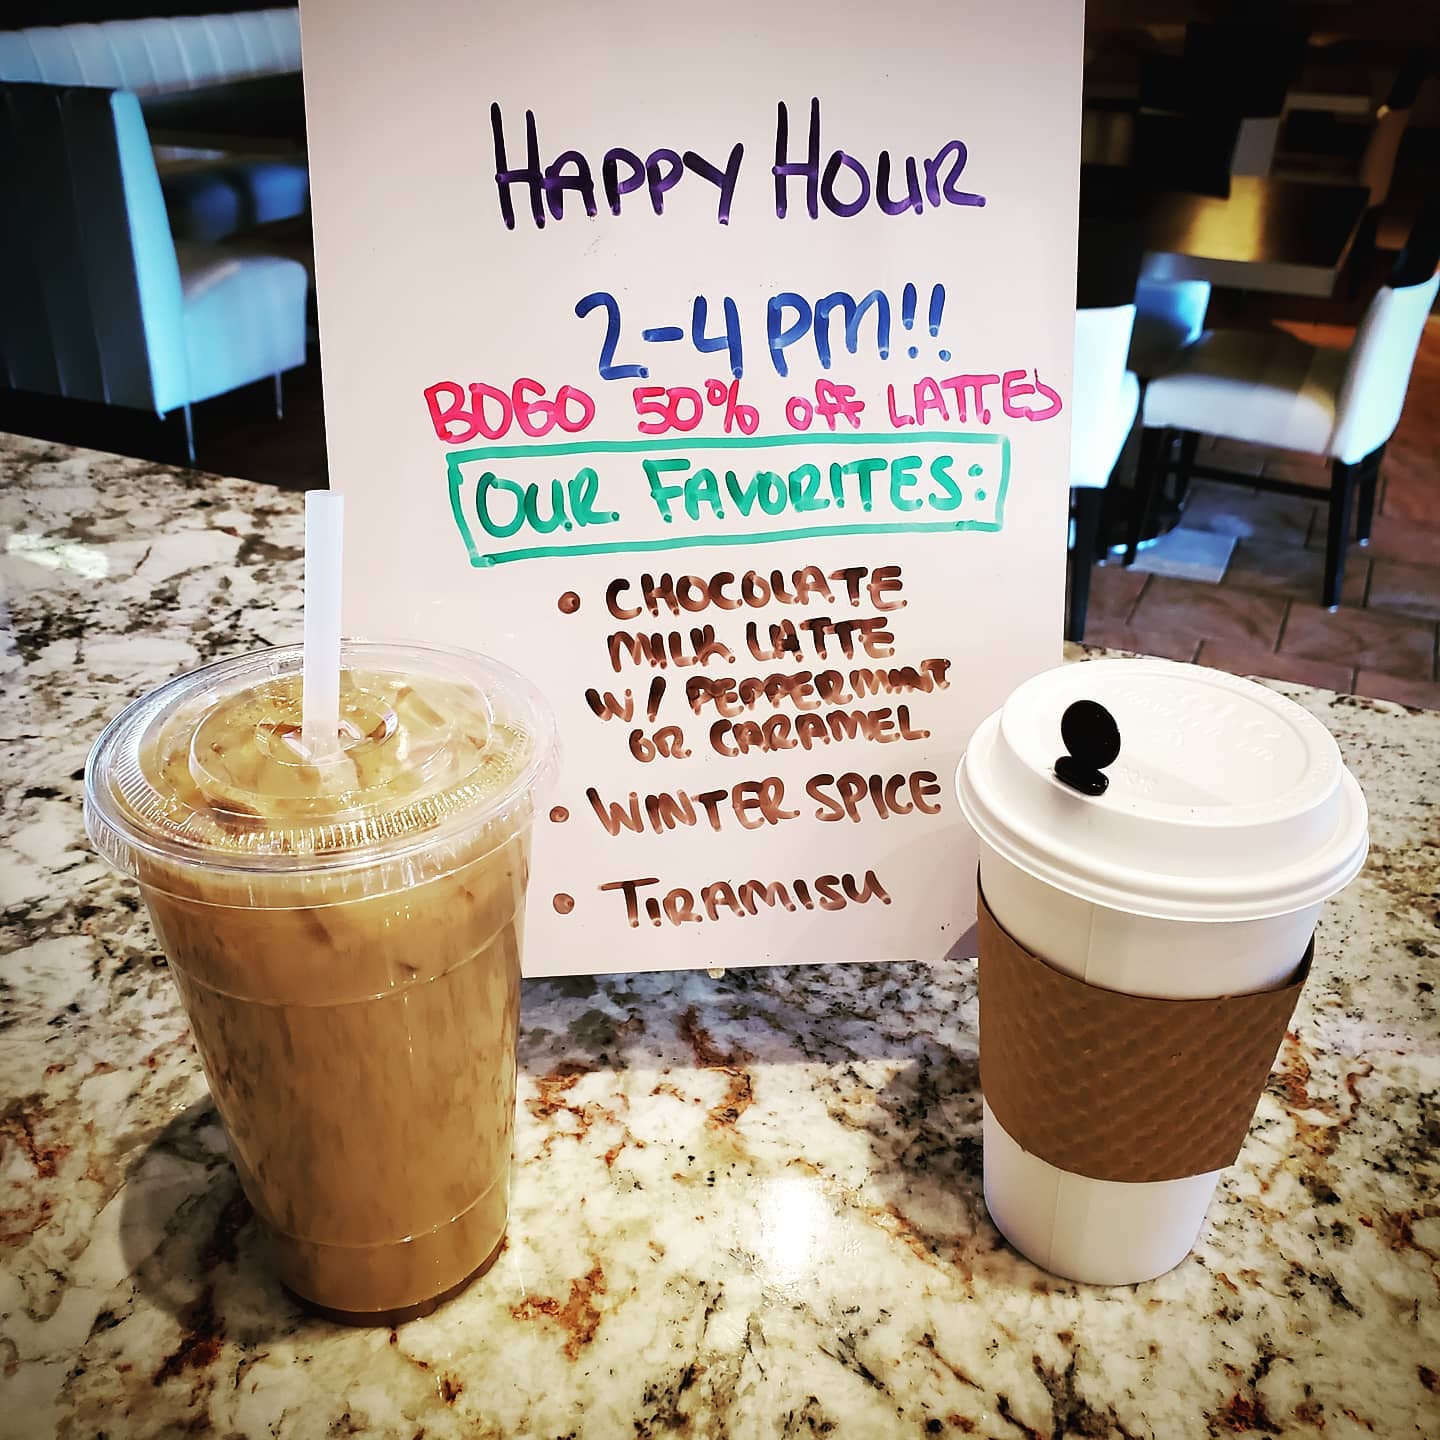 HAPPY HOUR
2-4 PM!!
BOGO 50% OFF LATTES
OUR FAVORITES:
• CHOCOLATE
MILK LATTE
W/ PEPPERMINT
OR CARAMEL
• WINTER SPICE
• TIRAMISU